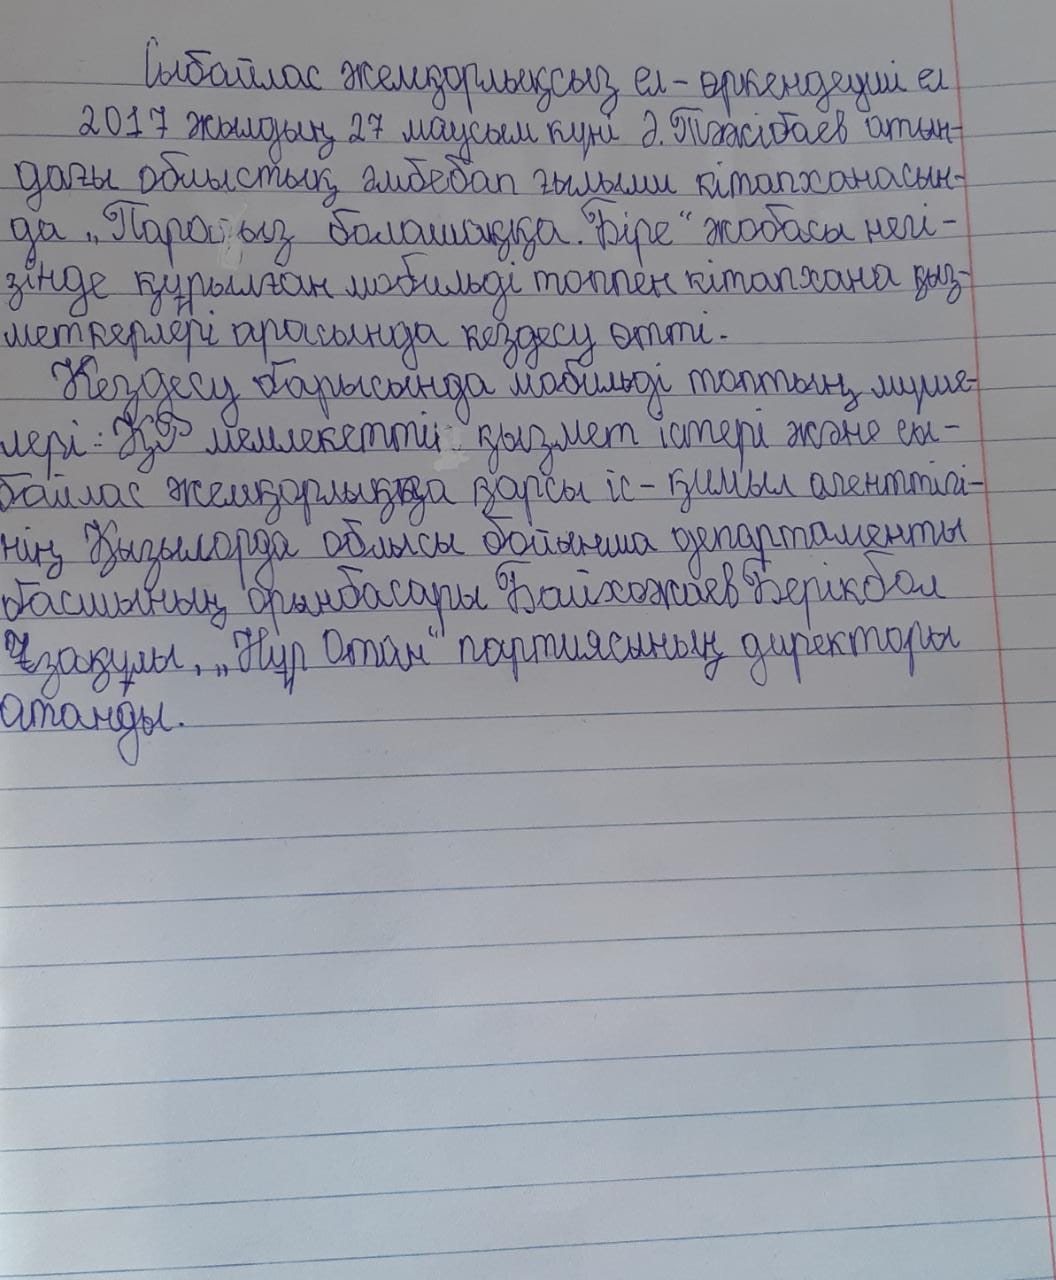 Сыбайлас жемқорлықсыз ел - өркендеуші ел
2017 жылдың 27 маусым күні Ә. Тәжібаев атын-
дағы облыстық әмбебап ғылыми кітапханасын-
да „Парасыз болашаққа. Бірге" жобасы негі-
зінде құрылған мобильді топпен кітапхана қыз-
меткерлері арасында кездесу өтті.
Кездесу барысында мобильді топтың мүше-
лері: ҚР мемлекеттік қызмет істері және сы-
байлас жемқорлыққа қарсы іс-қимыл агенттігі-
нің Қызылорда облысы бойынша департаменты
басшының орынбасары Байхожаев Берікбол
Ұзақұлы, „Нұр Отан" партиясының директоры
атанды.